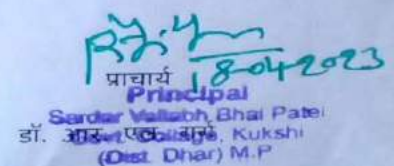 प्राचार्य 18-04-2023
Principal
Sardar Vallabh Bhai Patel
डॉ. आर. एल.
College, Kukshi
(Dist. Dhar) M.P